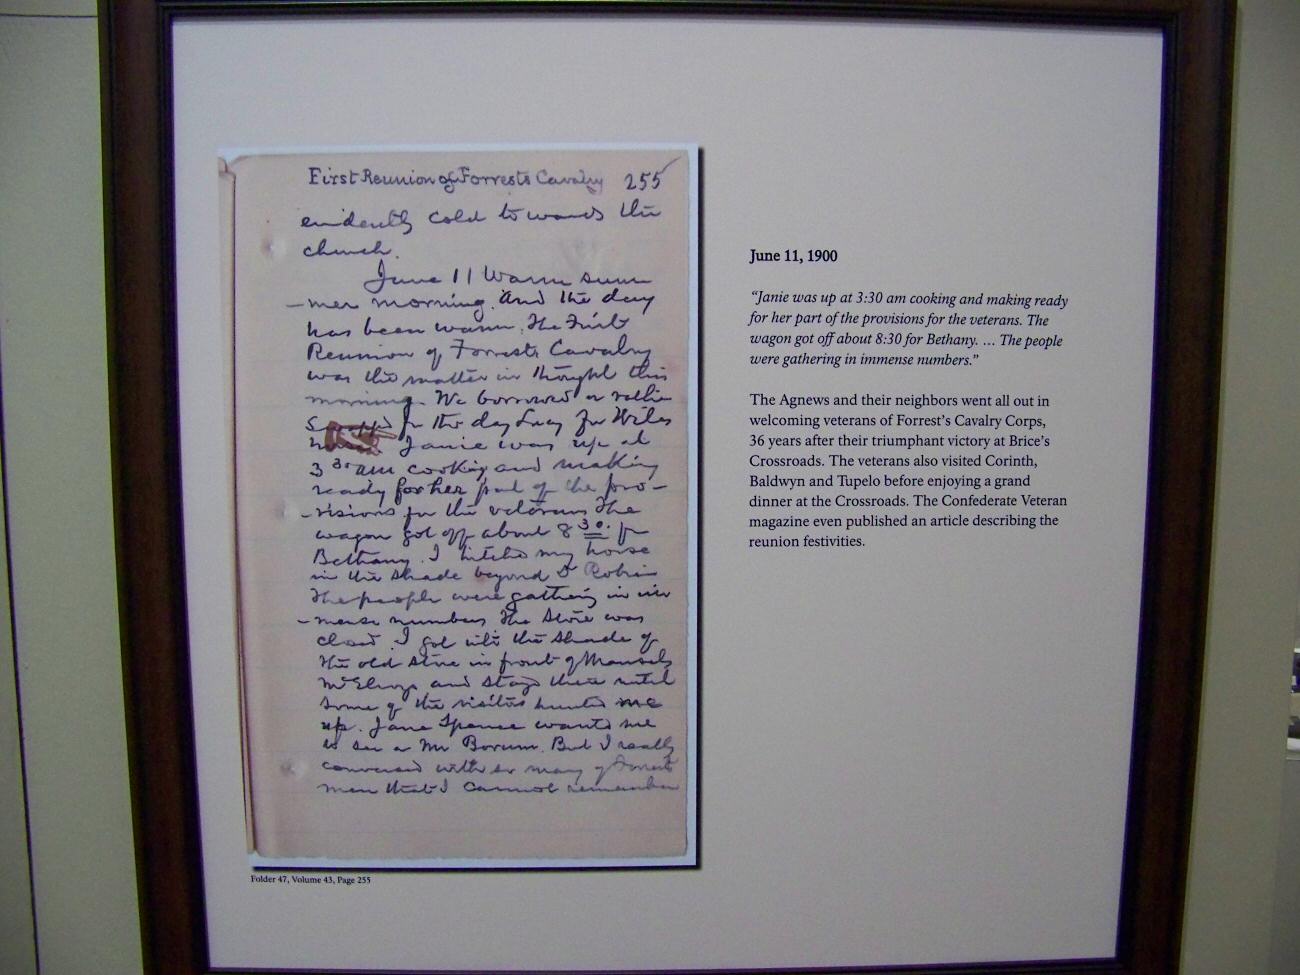 First Reunion of Forrests Cavalry 255
evidently cold towards the
church.
June 11 Warm sum
-mer morning. And the day
has been warm. The First
Reunion of Forrests Cavalry
was the matter in thought this
morning. We borrowed a
for the day
Janie was up at
3 30 am cooking and making
ready for her part of the pro-
-visions for the veterans The
wagon got off about 8 30. for
Bethany. I hitched my horse
in the shade beyond Dr
The people were gathering in im
-mense numbers The store was
closed. I got into the shade of
the old store in front of
McElroys and stayed there until
some of the visitors hunted me
up. Jane Spence wanted me
to see a Mr Borum. But I really
conversed with so many of Forrests
men that I cannot remember
Folder 47, Volume 43, Page 255
June 11, 1900
“Janie was up at 3:30 am cooking and making ready
for her part of the provisions for the veterans. The
wagon got off about 8:30 for Bethany. … The people
were gathering in immense numbers.”
The Agnews and their neighbors went all out in
welcoming veterans of Forrest’s Cavalry Corps,
36 years after their triumphant victory at Brice’s
Crossroads. The veterans also visited Corinth,
Baldwyn and Tupelo before enjoying a grand
dinner at the Crossroads. The Confederate Veteran
magazine even published an article describing the
reunion festivities.